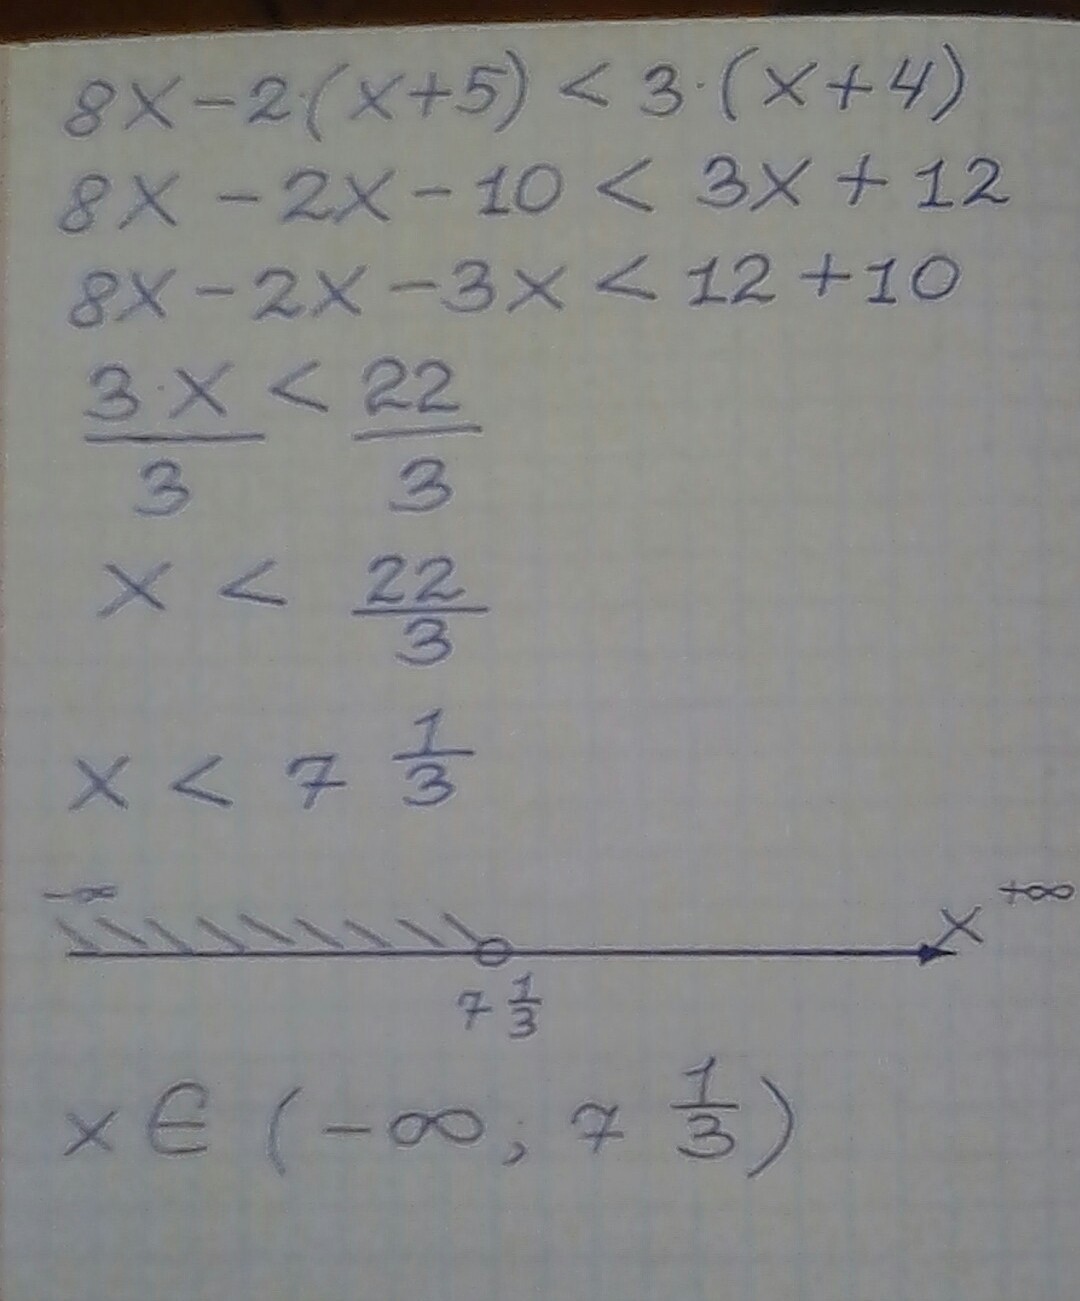 8x-2·(x+5) < 3·(x+4)
8x - 2x - 10 < 3x + 12
8x - 2x - 3x < 12 + 10
3·x/3 < 22/3
x < 22/3
x < 7 1/3
-∞ x +∞
7 1/3
x ∈ (-∞; 7 1/3)